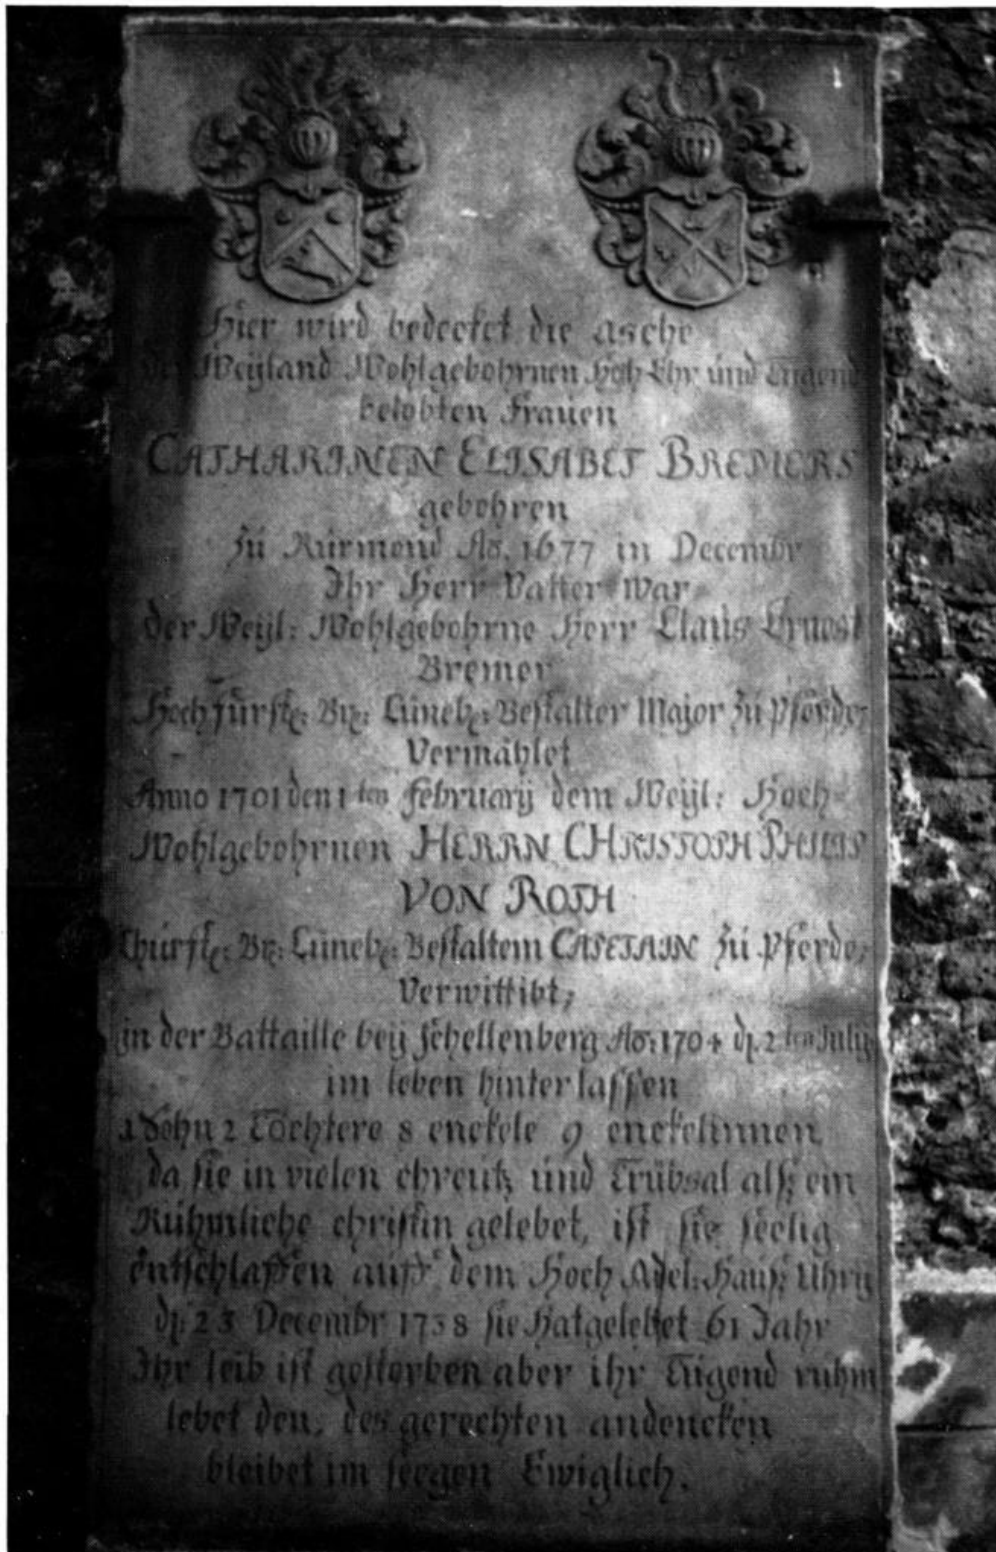 Hier wird bedecket die asche
der Weyland Wohlgebohrnen Hoh Ehr und Tugend
belobten Frauen
CATHARINEN ELISABET BREMERS
gebohren
zu Rürmond Ao. 1677 in Decembr
Ihr Herr Vatter War
der Weyl: Wohlgebohrne Herr Claus Ernest
Bremer
Hochfürstl: Br: Lüneb: Bestalter Major zu Pferde,
Vermählet
Anno 1701 den 1ten February dem Weyl: Hoch
Wohlgebohrnen HERRN CHRISTOPH PHILIP
VON ROTH
Churfl: Br: Lüneb: Bestaltem CAPETAIN zu Pferde,
Verwittibt,
in der Battaille bey Schellenberg Ao: 1704 d. 2ten July
im leben hinterlassen
1 Sohn 2 Töchtere 8 enckele 9 enckelinnen
da sie in vielen chreutz und Trübsal alß ein
Rühmliche christin gelebet, ist sie seelig
entschlaffen auff dem Hoch Adel: Hauß Uhry
d: 23 Decembr 1738 sie Hat gelebet 61 Jahr
Ihr leib ist gestorben aber ihr Tugend ruhm
lebet den, des gerechten andencken
bleibet im seegen Ewiglich.